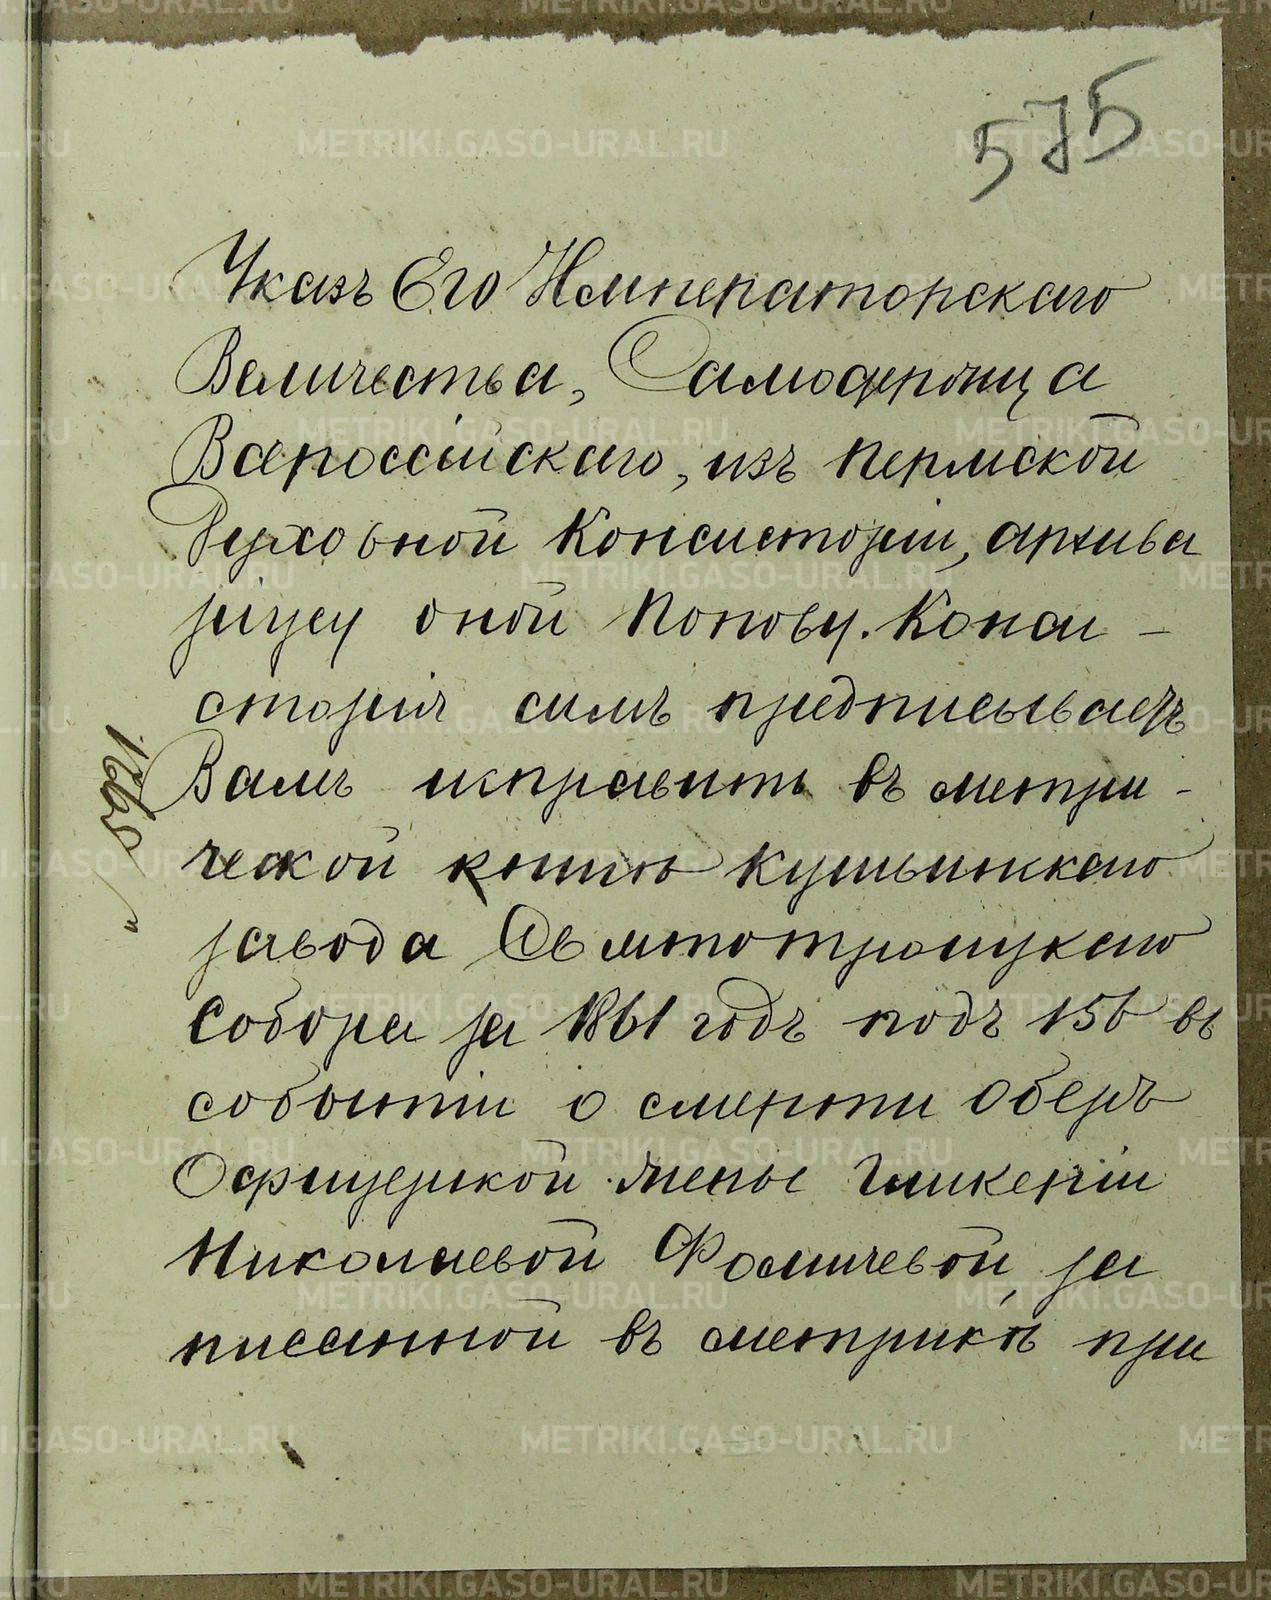 575
Указъ Его Императорскаго
Величества, Самодержца
Всероссійскаго, изъ Пермской
Духовной Консисторіи, архива
ріусу оной Попову. Конси-
сторія симъ предписываетъ
Вамъ исправить въ метри-
ческой копію Кушвинскаго
завода Святотроицкаго
Собора за 1861 годъ подъ 156 въ
событіи о смерти Оберъ
Офицерской жены Гликеріи
Николаевой Фомичевой, за
писанной въ метрикѣ при
METRIKI.GASO-URAL.RU